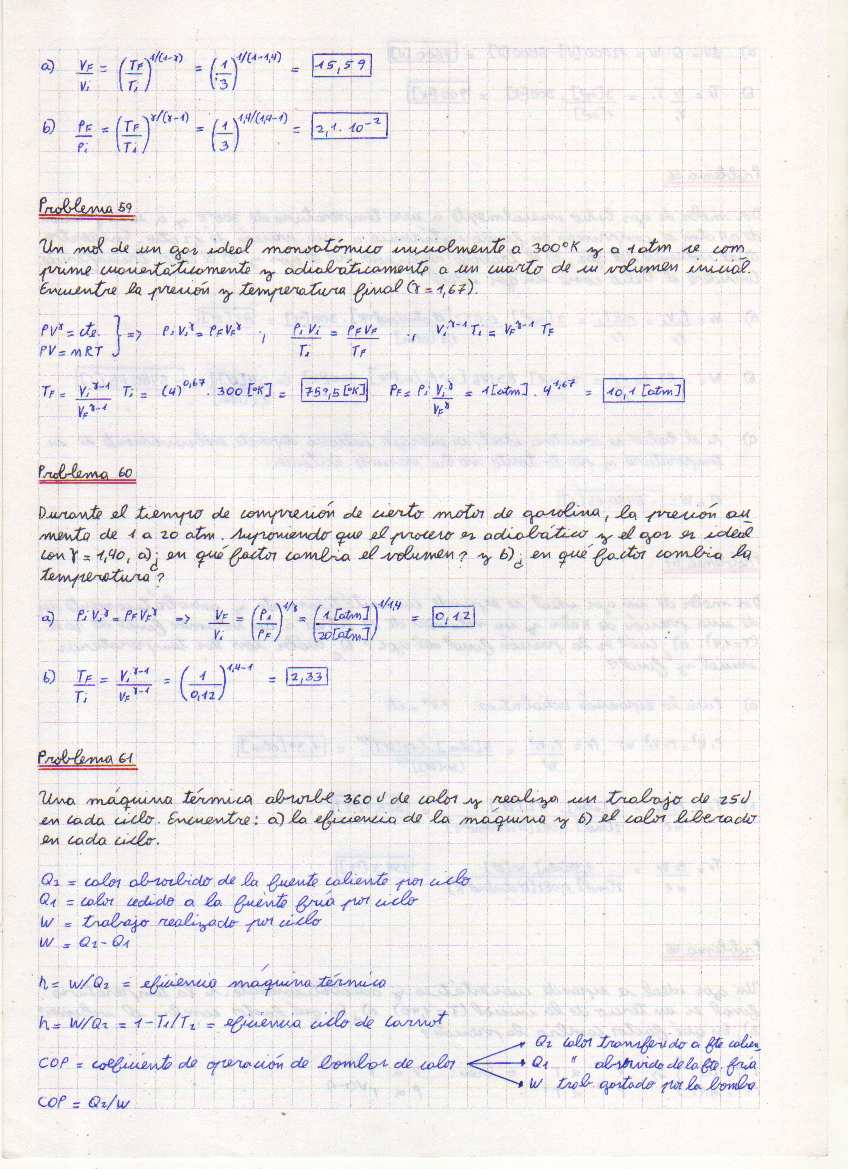 a) VF/Vi = (TF/Ti)^1/(1-γ) = (1/3)^1/(1-1,4) = 15,59
b) PF/Pi = (TF/Ti)^γ/(γ-1) = (1/3)^1,4/(1,4-1) = 2,1·10^-2
Problema 59
Un mol de un gas ideal monoatómico inicialmente a 300°K y a 1 atm se com
prime cuasiestáticamente y adiabáticamente a un cuarto de su volumen inicial.
Encuentre la presión y temperatura final (γ = 1,67).
PV^γ = cte. } => Pi Vi^γ = PF VF^γ ; Pi Vi/Ti = PF VF/TF ; Vi^γ-1 Ti = VF^γ-1 TF
PV = nRT
TF = Vi^γ-1/VF^γ-1 Ti = (4)^0,67 · 300 [°K] = 759,5 [°K] PF = Pi Vi^γ/VF^γ = 1 [atm] · 4^1,67 = 10,1 [atm]
Problema 60
Durante el tiempo de compresión de cierto motor de gasolina, la presión au
menta de 1 a 20 atm. Suponiendo que el proceso es adiabático y el gas es ideal
con γ = 1,40, a) ¿ en qué factor cambia el volumen? y b) ¿ en qué factor cambia la
temperatura?
a) Pi Vi^γ = PF VF^γ => VF/Vi = (Pi/PF)^1/γ = (1 [atm]/20 [atm])^1/1,4 = 0,12
b) TF/Ti = Vi^γ-1/VF^γ-1 = (1/0,12)^1,4-1 = 2,33
Problema 61
Una máquina térmica absorbe 360 J de calor y realiza un trabajo de 25 J
en cada ciclo. Encuentre: a) la eficiencia de la máquina y b) el calor liberado
en cada ciclo.
Q2 = calor absorbido de la fuente caliente por ciclo
Q1 = calor cedido a la fuente fría por ciclo
W = trabajo realizado por ciclo
W = Q2 - Q1
η = W/Q2 = eficiencia máquina térmica
η = W/Q2 = 1 - T1/T2 = eficiencia ciclo de carnot
Q2 calor transferido a fte calien_
COP = coeficiente de operación de bombas de calor Q1 " absorvido de la fte. fría
W trab. gastado por la bomba
COP = Q2/W